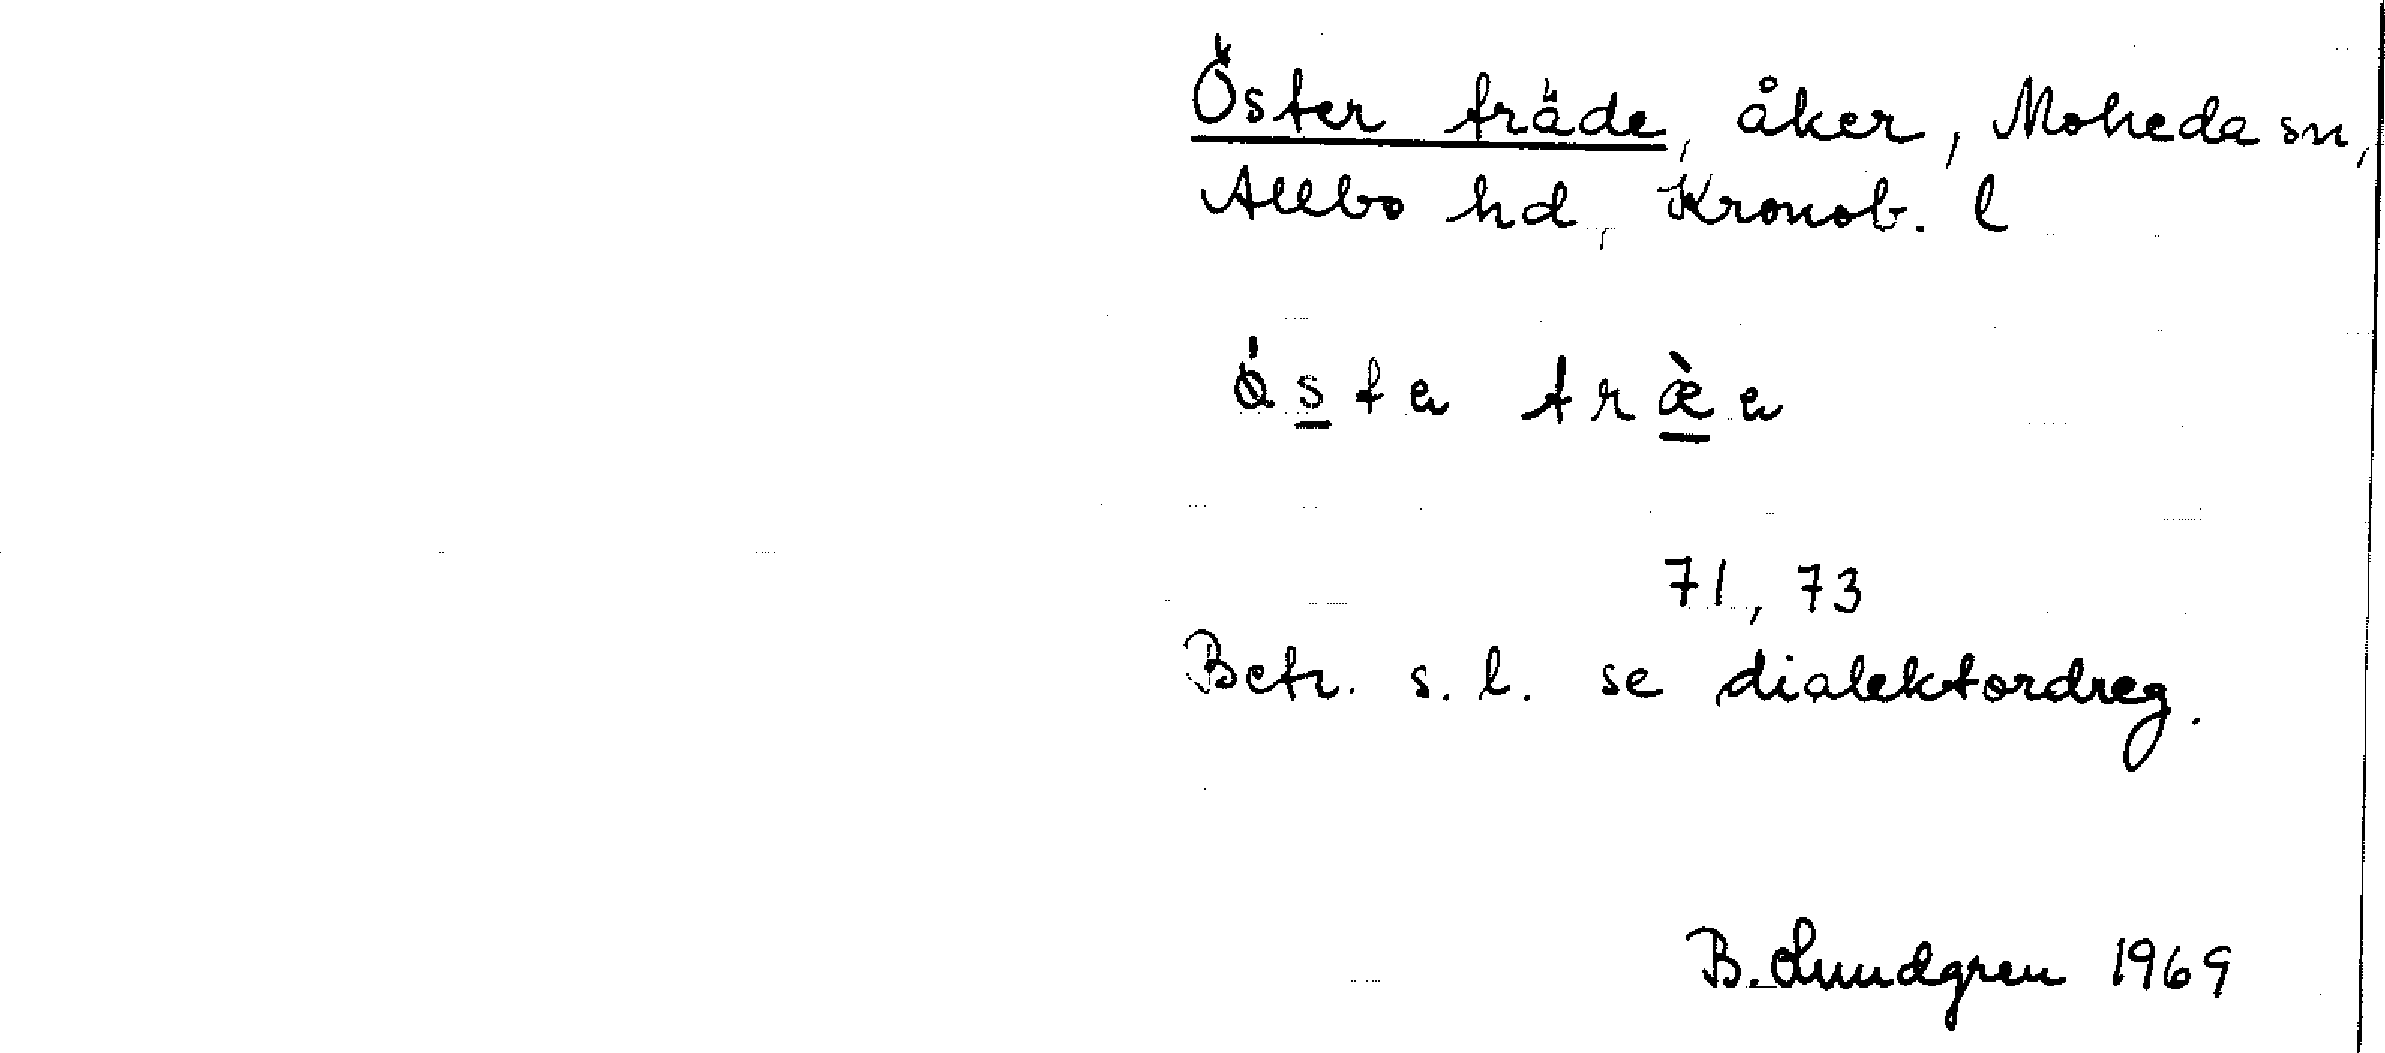 Öster träde, åker, Moheda sn,
Allbo hd, Kronob. l
ǿste træ̀e
71, 73
Betr. s. l. se dialektordreg.
B. Lundgren 1969